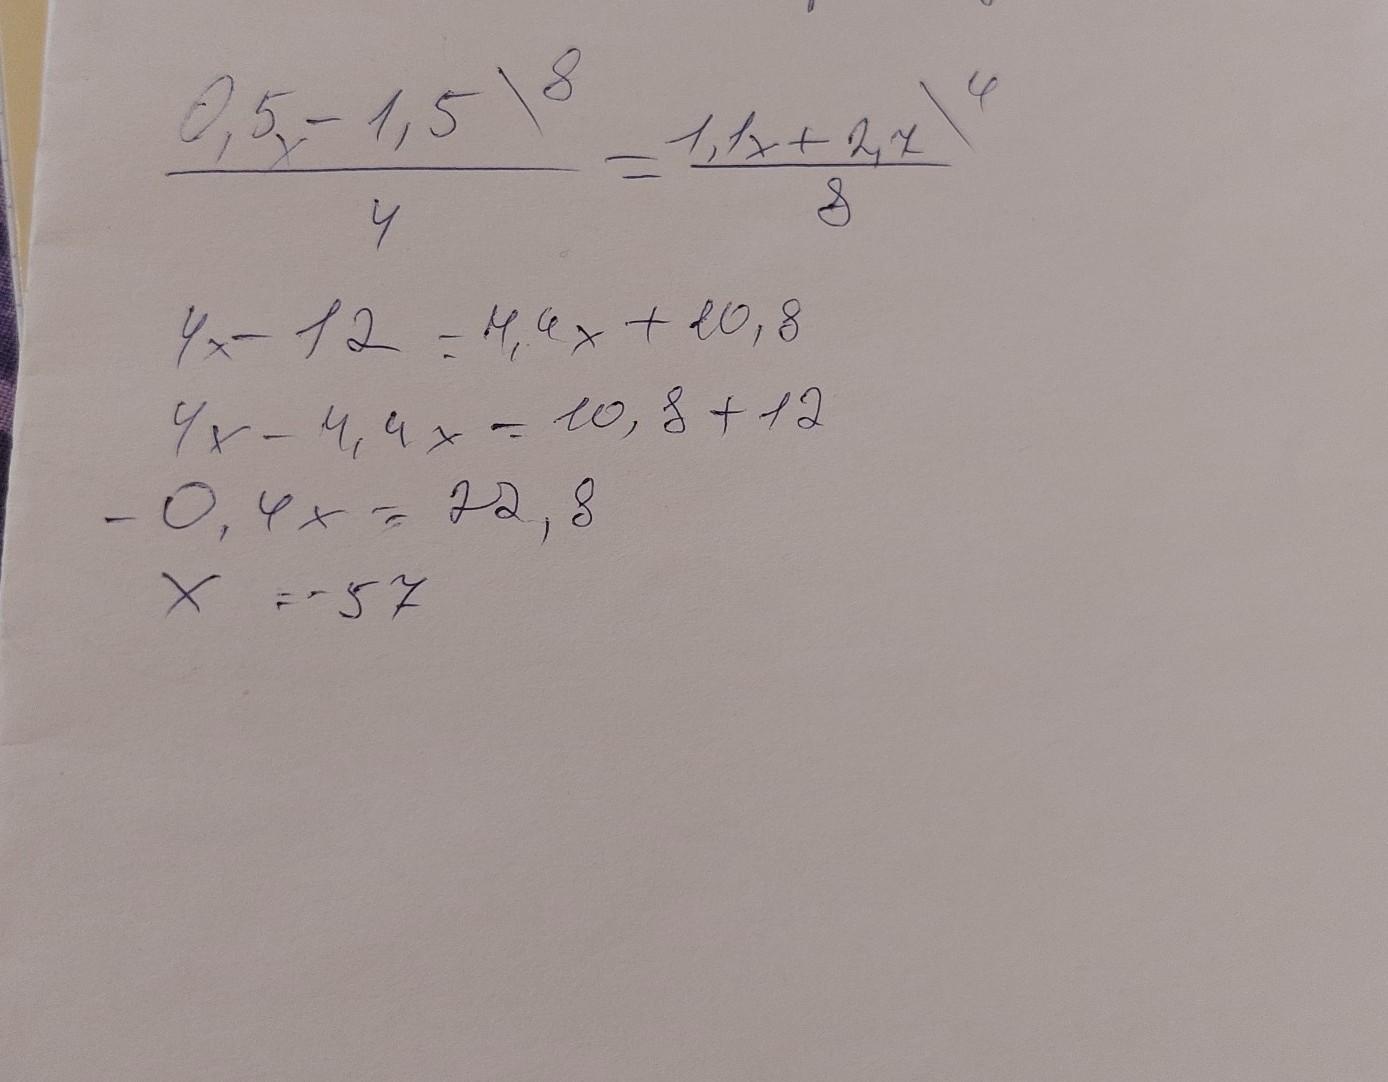 0,5x - 1,5 \8 / 4 = 1,1x + 2,7 \4 / 8
4x - 12 = 4,4x + 10,8
4x - 4,4x = 10,8 + 12
- 0,4x = 22,8
x = - 57